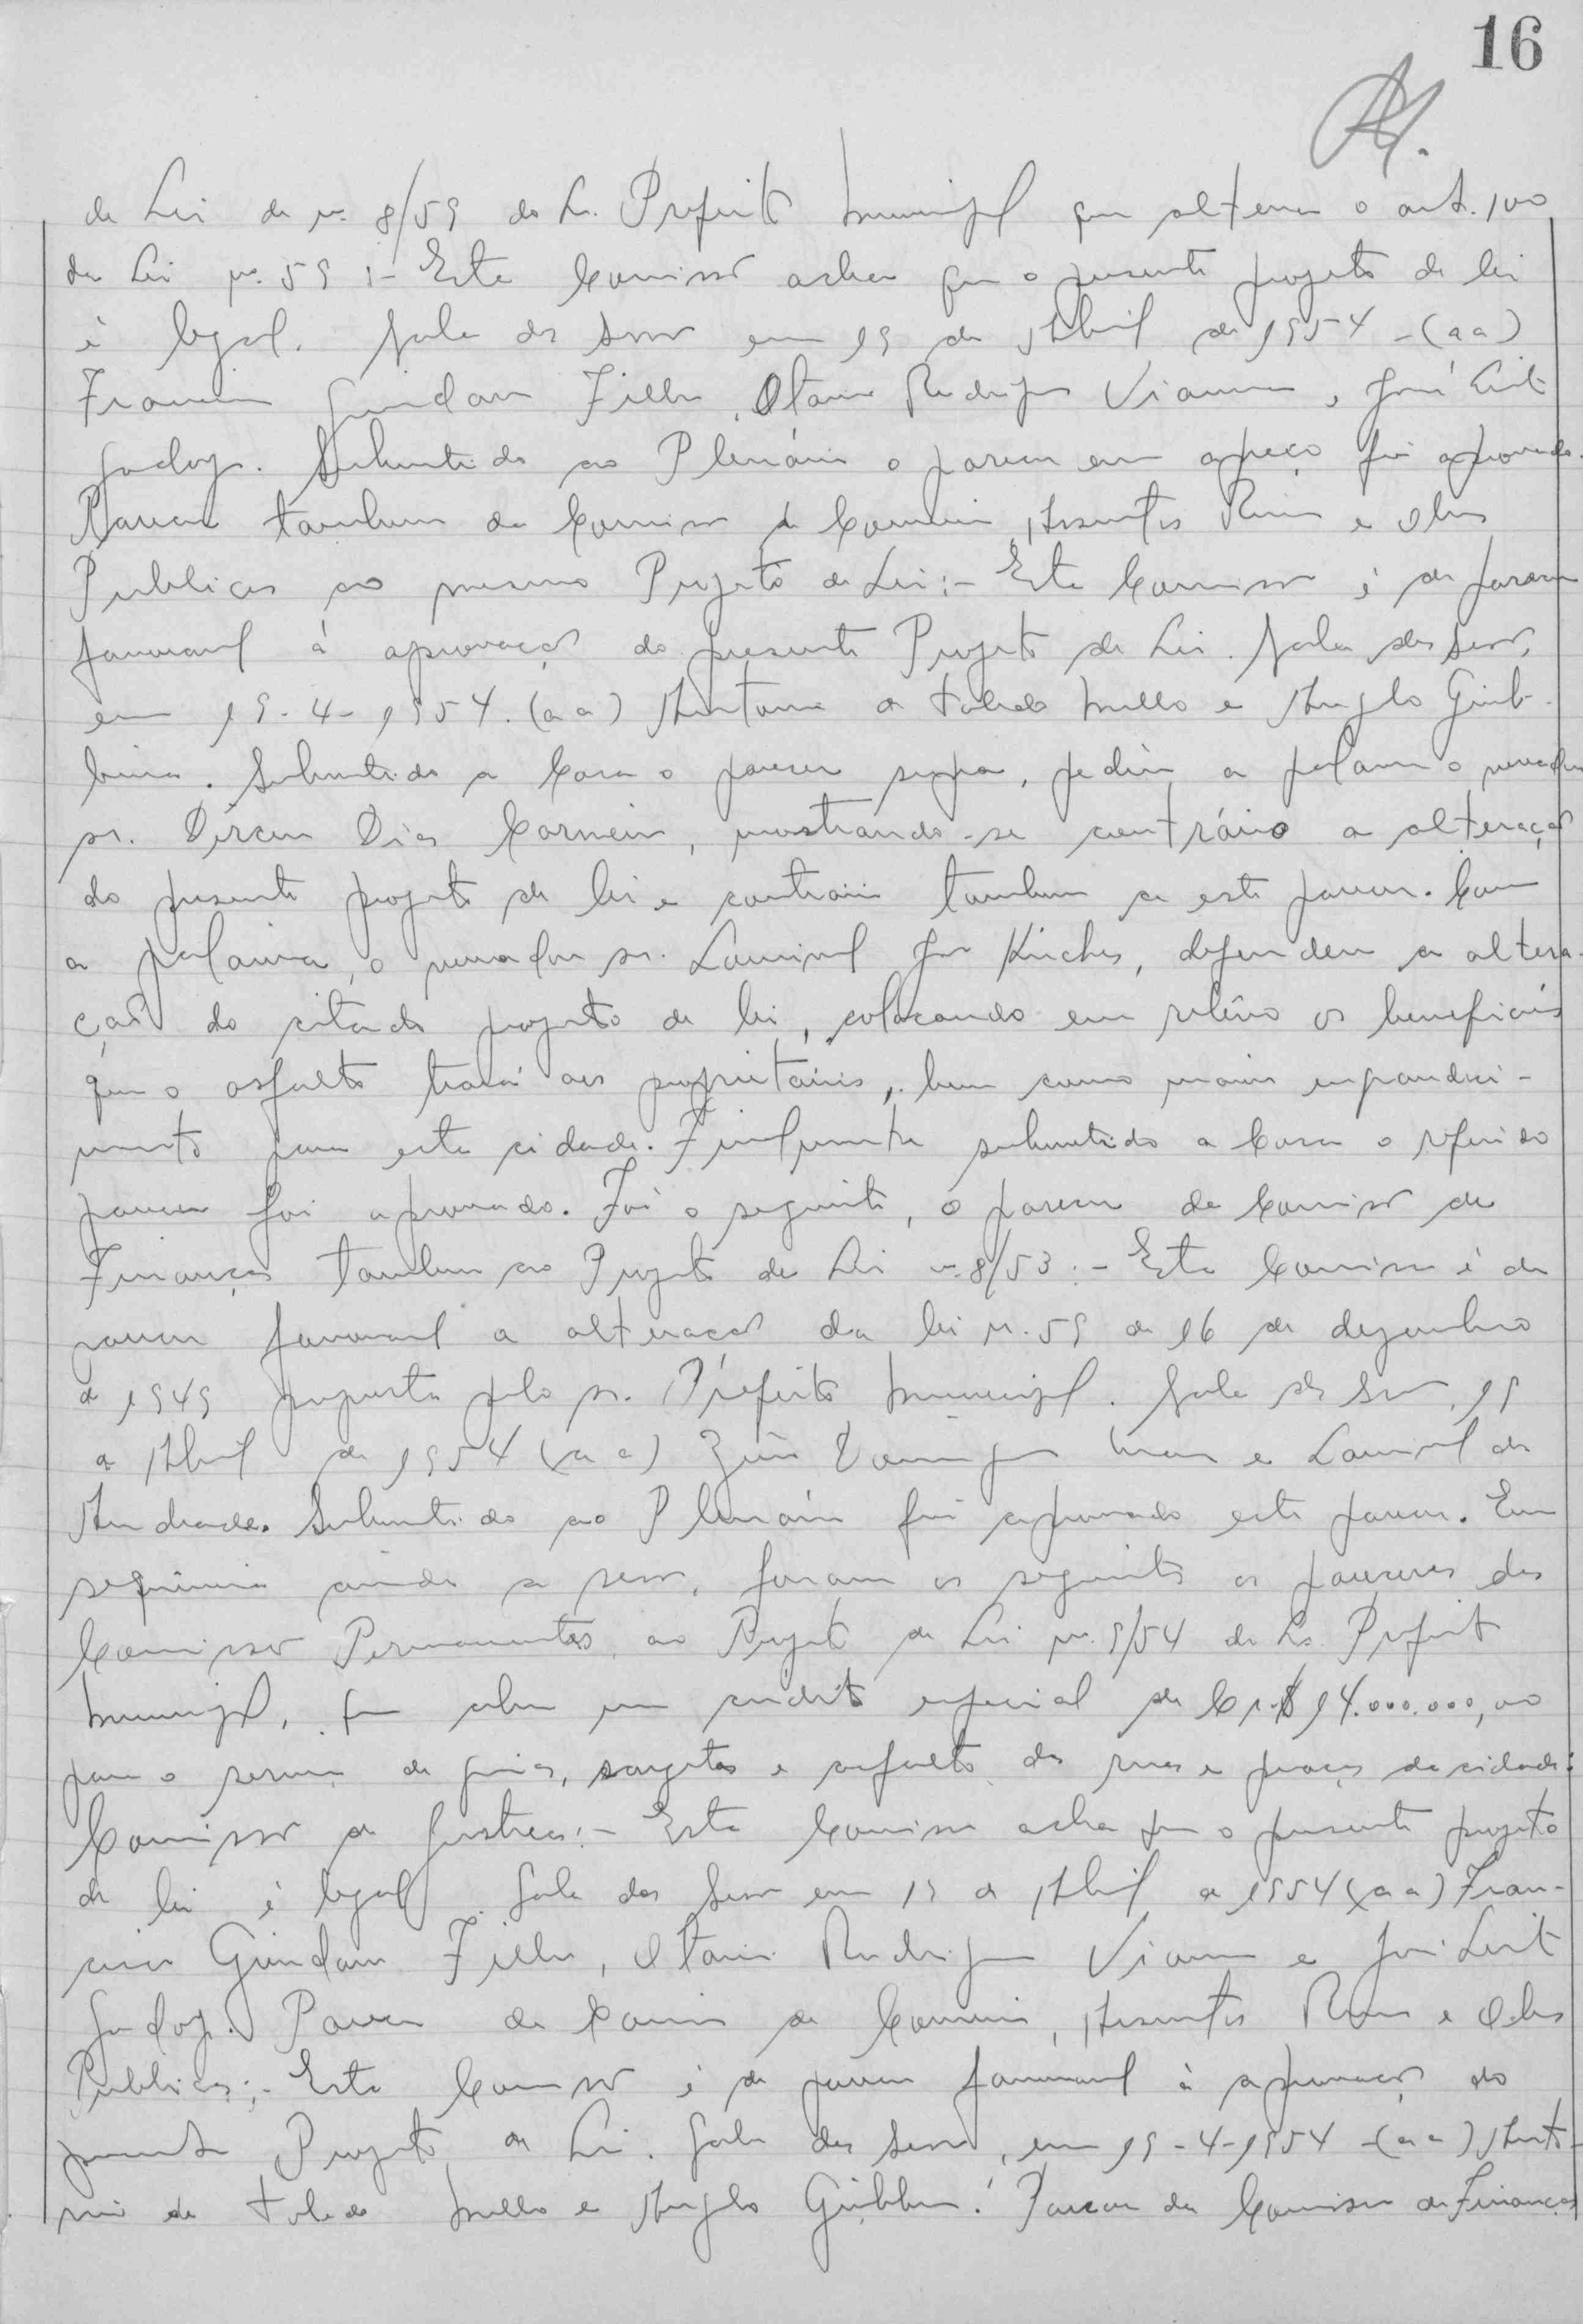 16
de Lei de n. 8/59 do Sr. Prefeito Municipal que altera o art. 100
da Lei no. 59 :- Esta Comissão acha que o presente projeto de lei
é legal. Sala das Sessões em 19 de Abril de 1954 - (aa)
Francisco Filho, Otavio Rodrigues Vianna, José Leite
Godoy. Submetido ao Plenário o parecer em apreço foi aprovado.
Parecer tambem da Comissão de Comercio, Assuntos Rurais e Obras
Publicas ao mesmo Projeto de Lei :- Esta Comissão é de parecer
favoravel á aprovação do presente Projeto de Lei. Sala das Sessões,
em 19-4-1954. (aa) Antonio de Toledo Mello e Angelo
Submetido a Casa o parecer supra, pediu a palavra o vereador
sr. Dirceu Dias Carneiro, mostrando-se contrário a alteração
do presente projeto de lei e contrario tambem a este parecer. Com
a palavra, o vereador sr. Lourival defendeu a altera-
ção do citado projeto de lei, colocando em relêvo os beneficios
que o asfalto trará aos proprietários, bem como maior engrandeci-
mento para esta cidade. Finalmente submetido a Casa o referido
parecer foi aprovado. Foi o seguinte, o parecer da Comissão de
Finanças tambem ao Projeto de Lei n. 8/53 :- Esta Comissão é de
parecer favoravel a alteração da lei n. 59 de 16 de dezembro
de 1949 proposta pelo sr. Prefeito Municipal. Sala das Sessões, 19
de Abril de 1954 (aa) e Lourival de
Andrade. Submetido ao Plenário foi aprovado este parecer. Em
sequencia ainda a sessão, foram os seguintes os pareceres das
Comissões Permanentes ao Projeto de Lei no. 9/54 do Sr. Prefeito
Municipal, que abre um credito especial de Cr.$ 14.000.000,00
para o serviço de guias, sargetas e asfalto das ruas e praças da cidade:
Comissão de Justiça :- Esta Comissão acha que o presente projeto
de lei é legal. Sala das Sessões em 19 de Abril de 1954 (aa) Fran-
cisco Filho, Otavio Rodrigues Vianna e José Leite
Godoy. Parecer da Comissão de Comercio, Assuntos Rurais e Obras
Publicas :- Esta Comissão é de parecer favoravel à aprovação do
presente Projeto de Lei. Sala das Sessões, em 19-4-1954 - (aa) Anto-
nio de Toledo Mello e Angelo Parecer da Comissão de Finanças